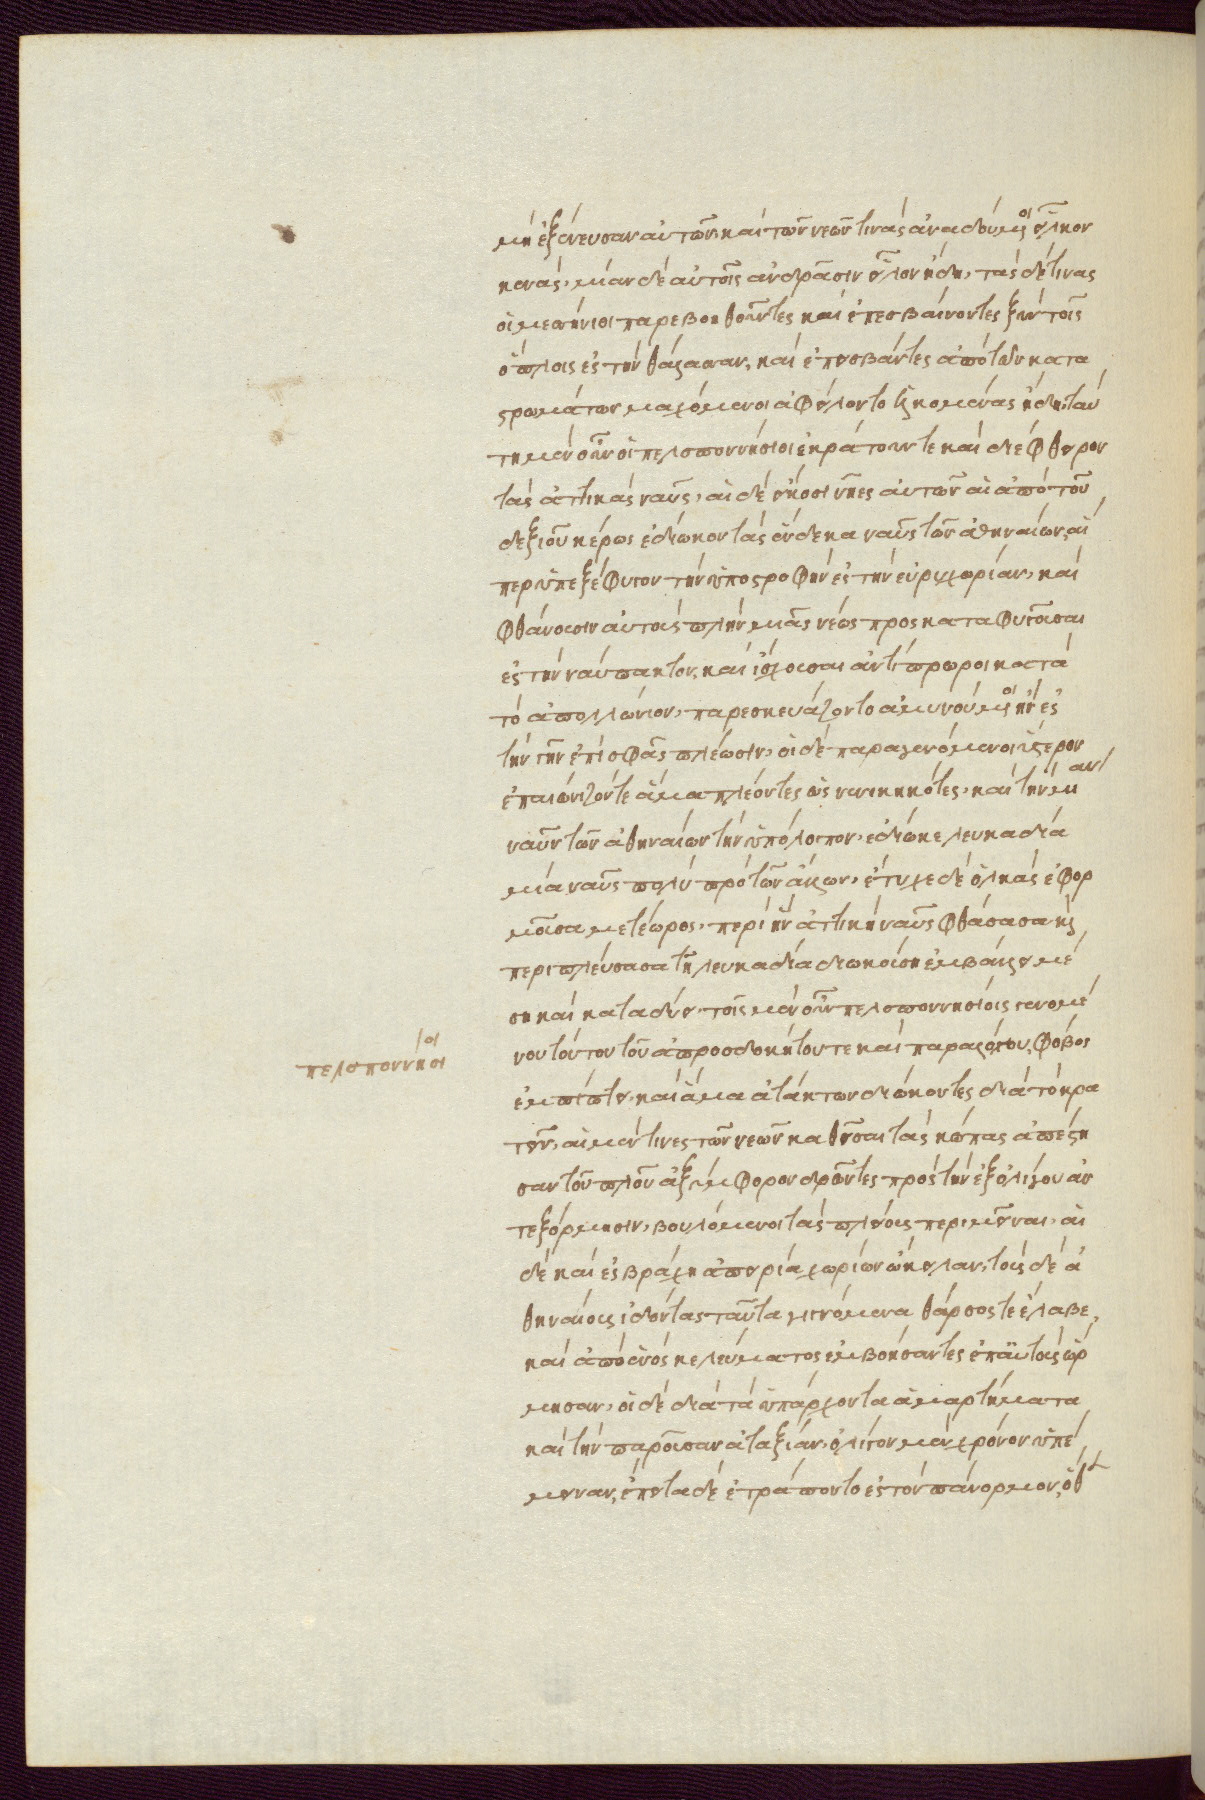 μὴ ἐξένευσαν αὐτῶν· καὶ τῶν νεῶν τινὰς ἀναδούμενοι εἷλκον
κενάς, μίαν δὲ αὐτοῖς ἀνδράσιν εἷλον ἤδη, τὰς δέ τινας
οἱ μεσήνιοι παρεβοηθοῦντες καὶ ἐπεσβαίνοντες ξὺν τοῖς
ὅπλοις ἐς τὴν θάλασσαν, καὶ ἐπεσβάντες ἀπὸ τῶν κατα
στρωμάτων μαχόμενοι ἀφείλοντο ἑλκομένας ἤδη. ταύ
τῃ μὲν οὖν οἱ πελοποννήσιοι ἐκράτουν τε καὶ διέφθειρον
τὰς ἀττικὰς ναῦς, αἱ δὲ εἴκοσι νῆες αὐτῶν αἱ ἀπὸ τοῦ
δεξιοῦ κέρως ἐδίωκον τὰς ἕνδεκα ναῦς τῶν ἀθηναίων, αἵ
περ ὑπεξέφυγον τὴν ὑποστροφὴν ἐς τὴν εὐρυχωρίαν, καὶ
φθάνουσιν αὐτοὺς πλὴν μιᾶς νεὼς προσκαταφυγοῦσαι
ἐς τὴν ναύπακτον, καὶ ἴσχουσαι ἀντίπρωροι κατὰ
τὸ ἀπολλώνιον, παρεσκευάζοντο ἀμυνούμενοι ἢν ἐς
τὴν γῆν ἐπὶ σφᾶς πλέωσιν, οἱ δὲ παραγενόμενοι ὕστερον
ἐπαιώνιζόν τε ἅμα πλέοντες ὡς νενικηκότες, καὶ τὴν μίαν
ναῦν τῶν ἀθηναίων τὴν ὑπόλοιπον, ἐδίωκε λευκαδία
μία ναῦς πολὺ πρὸ τῶν ἄλλων, ἔτυχε δὲ ὁλκὰς ἐφορ
μοῦσα μετέωρος, περὶ ἣν ἀττικὴ ναῦς φθάσασα καὶ
περιπλεύσασα τῇ λευκαδίᾳ διωκούσῃ ἐμβάλλει μέ
σῃ καὶ καταδύει. τοῖς μὲν οὖν πελοποννησίοις γενομέ
νου τούτου τοῦ ἀπροσδοκήτου τε καὶ παραλόγου, φόβος
πελοποννήσιοι
ἐμπίπτει, καὶ ἅμα ἀτάκτων διώκοντες διὰ τὸ κρα
τεῖν, αἱ μέν τινες τῶν νεῶν καθεῖσαι τὰς κώπας ἀπέστη
σαν τοῦ πλοῦ ἀξύμφορον δρῶντες πρὸς τὴν ἐξ ὀλίγου ἀν
τεξόρμησιν, βουλόμενοι τὰς πλείους περιμεῖναι, αἱ
δὲ καὶ ἐς βράχη ἀπειρίᾳ χωρίων ὤκειλαν, τοὺς δὲ ἀ
θηναίους ἰδόντας ταῦτα γιγνόμενα θάρσος τε ἔλαβε,
καὶ ἀπὸ ἑνὸς κελεύσματος ἐμβοήσαντες ἐπ' αὐτοὺς ὥρ
μησαν, οἱ δὲ διὰ τὰ ὑπάρχοντα ἁμαρτήματα
καὶ τὴν παροῦσαν ἀταξίαν, ὀλίγον μὲν χρόνον ὑπέ
μειναν, ἔπειτα δὲ ἐτράποντο ἐς τὸν πάνορμον, ὅθεν